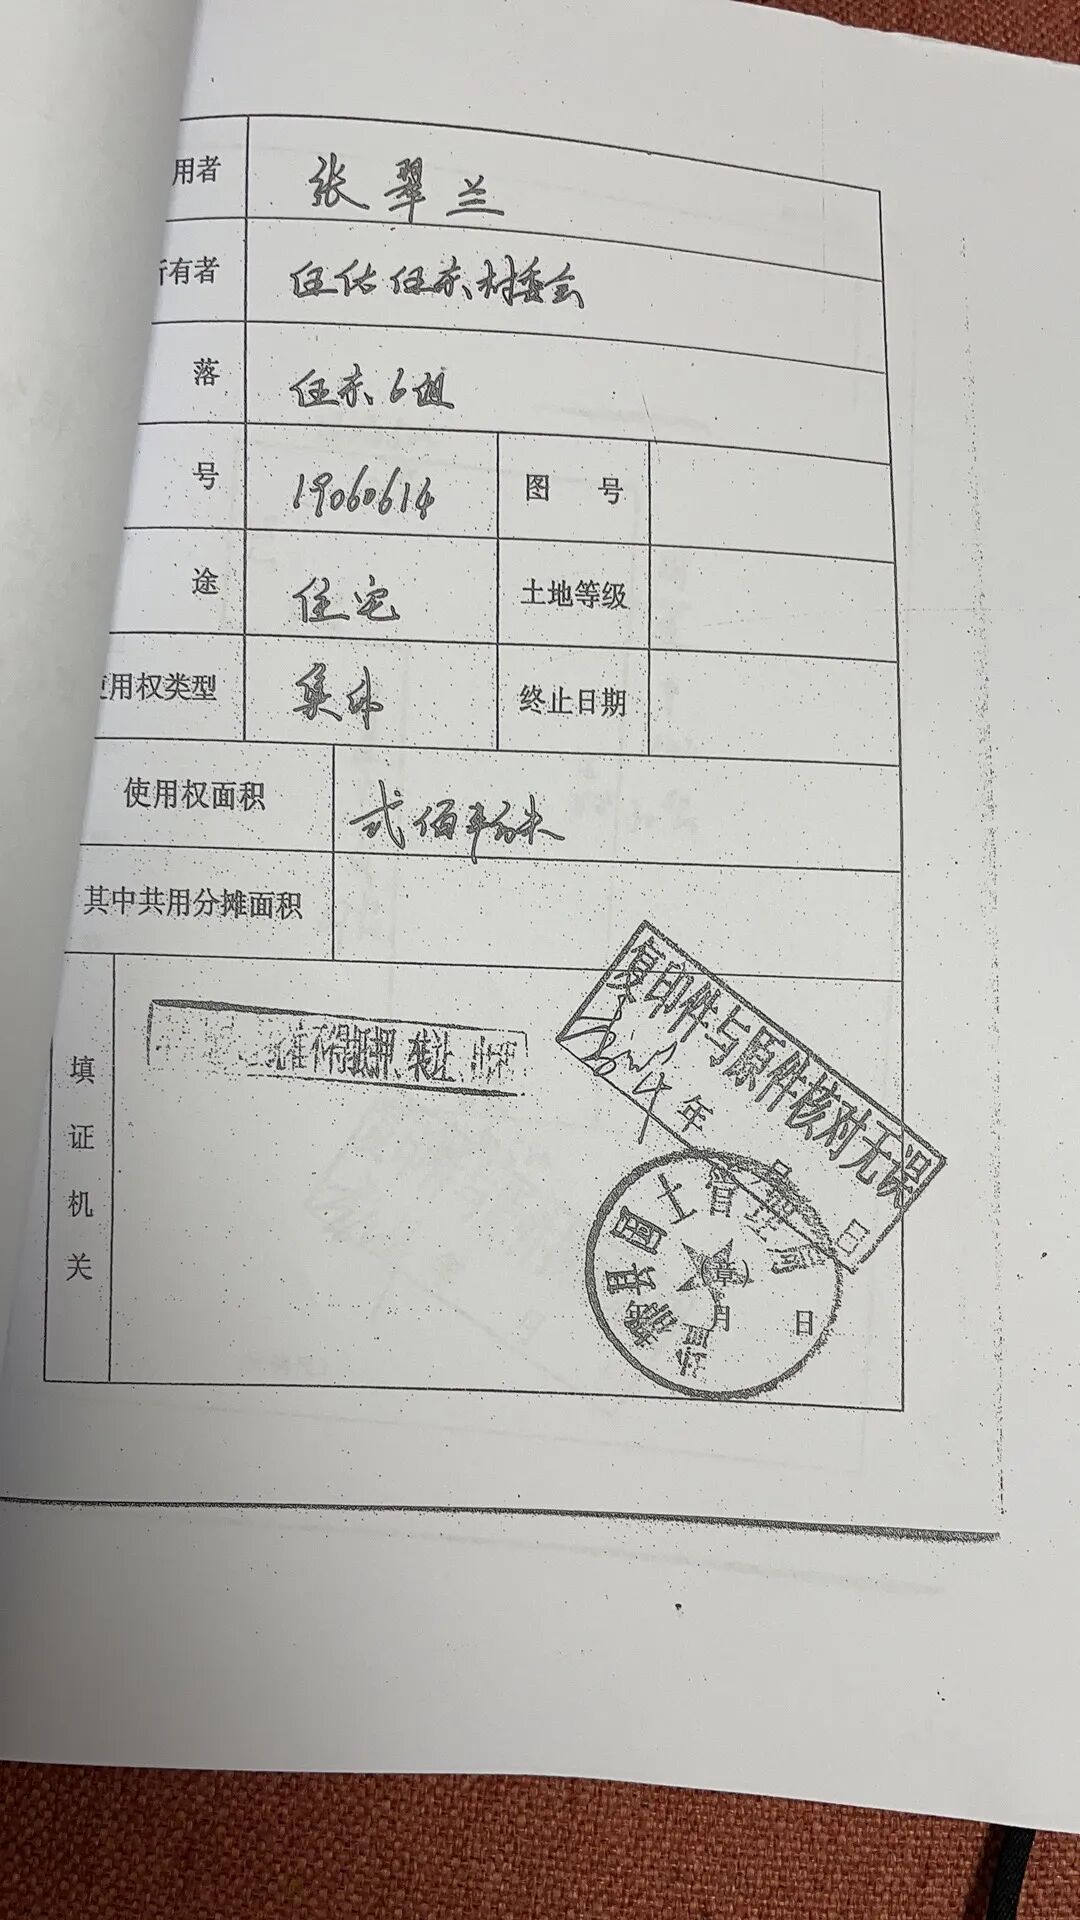 用者 张翠兰
所有者 伍佑任东村委会
落 任东6组
号 19060614 图 号
途 住宅 土地等级
使用权类型 集体 终止日期
使用权面积 弍佰平方米
其中共用分摊面积
填证机关
批准不得抵押、转让、出租
复印件与原件核对无误
年 月 日
盐都县国土管理局
(章)
年 月 日